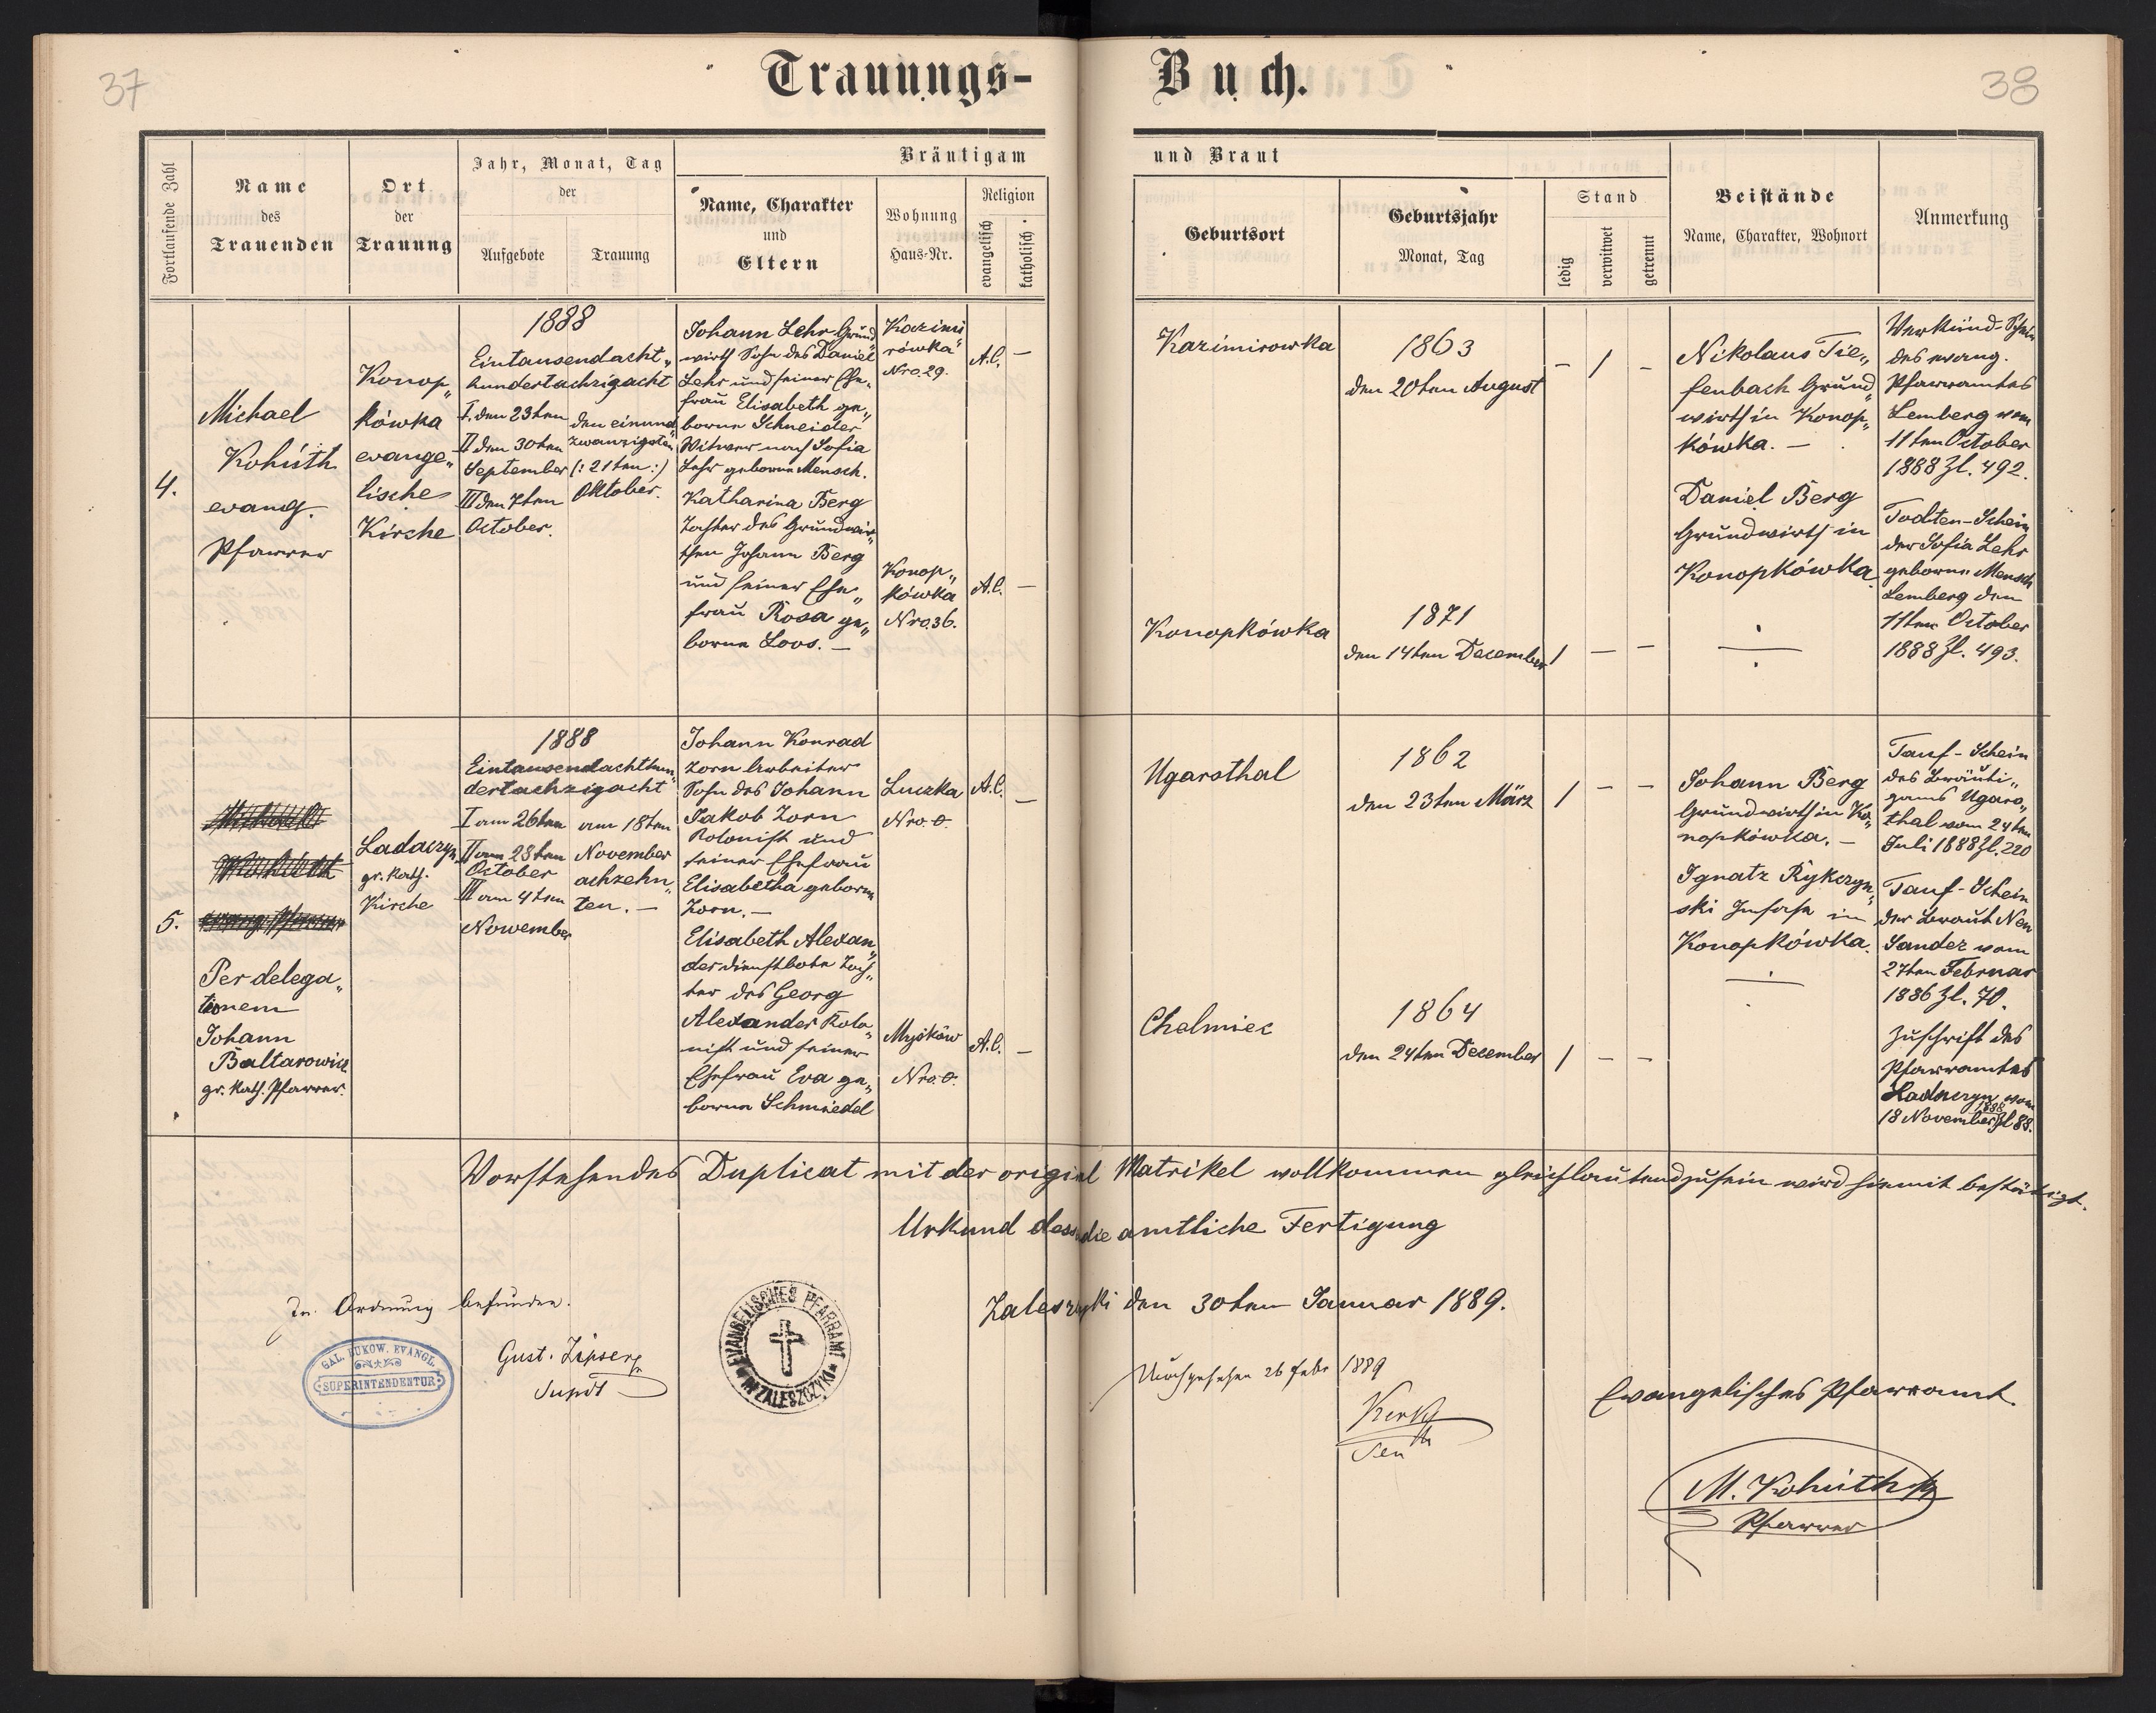 37
38
Trauungs-
Buch.
Fortlaufende Zahl
Name
des
Trauenden
Ort
der
Trauung
Jahr, Monat, Tag
der
Aufgebote
Trauung
Bräutigam
und Braut
Name, Charakter
und
Eltern
Wohnung
Haus-Nr.
Religion
evangelisch
katholisch.
Geburtsort
Geburtsjahr
Monat, Tag
Stand
ledig
verwitwet
getrennt
Beistände
Name, Charakter, Wohnort
Anmerkung
4.
Michael
Kohúth
evang.
Pfarrer
Konop„
kówka
evange„
lische
Kirche
1888
Eintausendacht„
hundertachzigacht
I. den 23ten
II den 30ten
September
III den 7ten
October.
den einund
zwanzigsten
(: 21ten :)
Oktober.
Johann Lehr Grund„
wirth Sohn des Daniel
Lehr und seiner Ehe„
frau Elisabeth ge„
borne Schneider
Witwer nach Sofia
Lehr geborne Mensch.
Katharina Berg
Tochter des Grundwir„
then Johann Berg
und seiner Ehe„
frau Rosa ge„
borne Loos. —
Kazimi
rówka
Nro. 29.
A.C. —
Konop„
kówka
Nro. 36.
A.C. —
Kazimirowka
1863
den 20ten August
— 1 —
Konopkówka
1871
den 14ten December
1 — —
Nikolaus Tie„
fenbach Grund„
wirth in Konop„
kówka. —
Daniel Berg
Grundwirth in
Konopkówka
Verkünd-Schein
des evang.
Pfarramtes
Lemberg vom
11ten October
1888 Zl. 492.
Todten-Schein
der Sofia Lehr
geborne Mensch
Lemberg den
11ten October
1888 Zl. 493.
5.
Per delega„
tionem
Johann
Baltarowicz
gr. kath. Pfarrer.
Ladaczyn
gr. kath.
Kirche
1888
Eintausendachthun„
dertachzigacht
I am 26ten
II am 28ten
October
III am 4ten
November
am 18ten
November
achzehn„
ten. —
Johann Konrad
Zorn Arbeiter
Sohn des Johann
Jakob Zorn
Kolonist und
seiner Ehefrau
Elisabetha geborne
Zorn. —
Elisabeth Alexan„
der Dienstbote Toch„
ter des Georg
Alexander Kolo„
nist und seiner
Ehefrau Eva ge„
borne Schmiedel
Luczka
Nro. 0.
A.C. —
Myśków
Nro. 0.
A.C. —
Ugarsthal
1862
den 23ten März
1 — —
Chelmiec
1864
den 24ten December
1 — —
Johann Berg
Grundwirth in Ko„
nopkówka. —
Ignatz Rykczyn„
ski Insasse in
Konopkówka.
Tauf-Schein
des Bräuti„
gams Ugars„
thal vom 24ten
Juli 1888 Zl. 220
Tauf-Schein
der Braut Neu
Sandez vom
27ten Februar
1886 Zl. 70.
Zuschrift des
Pfarramtes
Ladaczyn vom
18 November 1888 Zl 88.
Vorstehendes Duplicat mit der original Matrikel vollkommen gleichlautend zu sein wird hiemit bestätigt.
Urkund dess die amtliche Fertigung
Zaleszczyki den 30ten Januar 1889.
In Ordnung befunden.
GAL. BUKOW. EVANGL.
SUPERINTENDENTUR
Gust. Zipser
Supdt
EVANGELISCHES PFARRAMT
IN ZALESZCZYKI
Nachgesehen 26 Febr 1889
Sen
Evangelisches Pfarramt.
M. Kohúth
Pfarrer